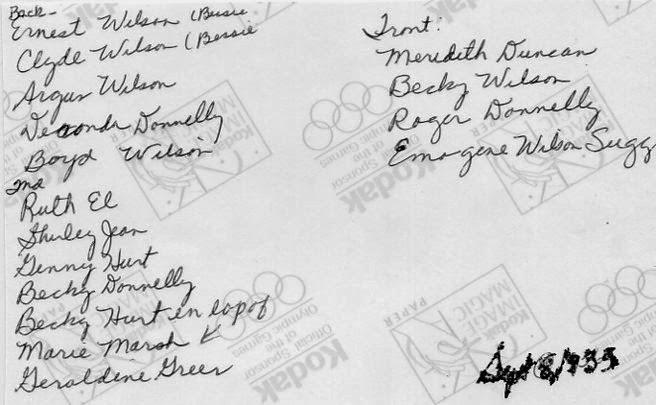 Back-
Ernest Wilson (Bessie
Clyde Wilson (Bessie
Argus Wilson
Deaonda Donnelly
Boyd Wilson
2nd
Ruth El
Shirley Jean
Genny Hurt
Becky Donnelly
Becky Hurt en
Marie Marsh
Geraldene Greer
Front:
Meredith Duncan
Becky Wilson
Roger Donnelly
Emogene Wilson Sugg
Sept 8/1935
Kodak
Official Sponsor
of the
Olympic Games
KODAK
MAGIC
PAPER